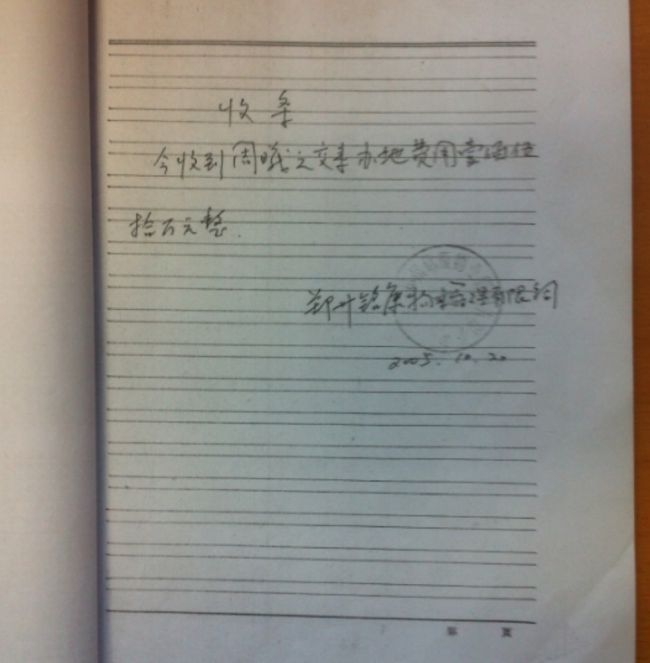 收条
今收到周曦之交来办地费用壹佰伍
拾万元整.
郑州铭原物业管理有限公司
2005.10.20
第 页